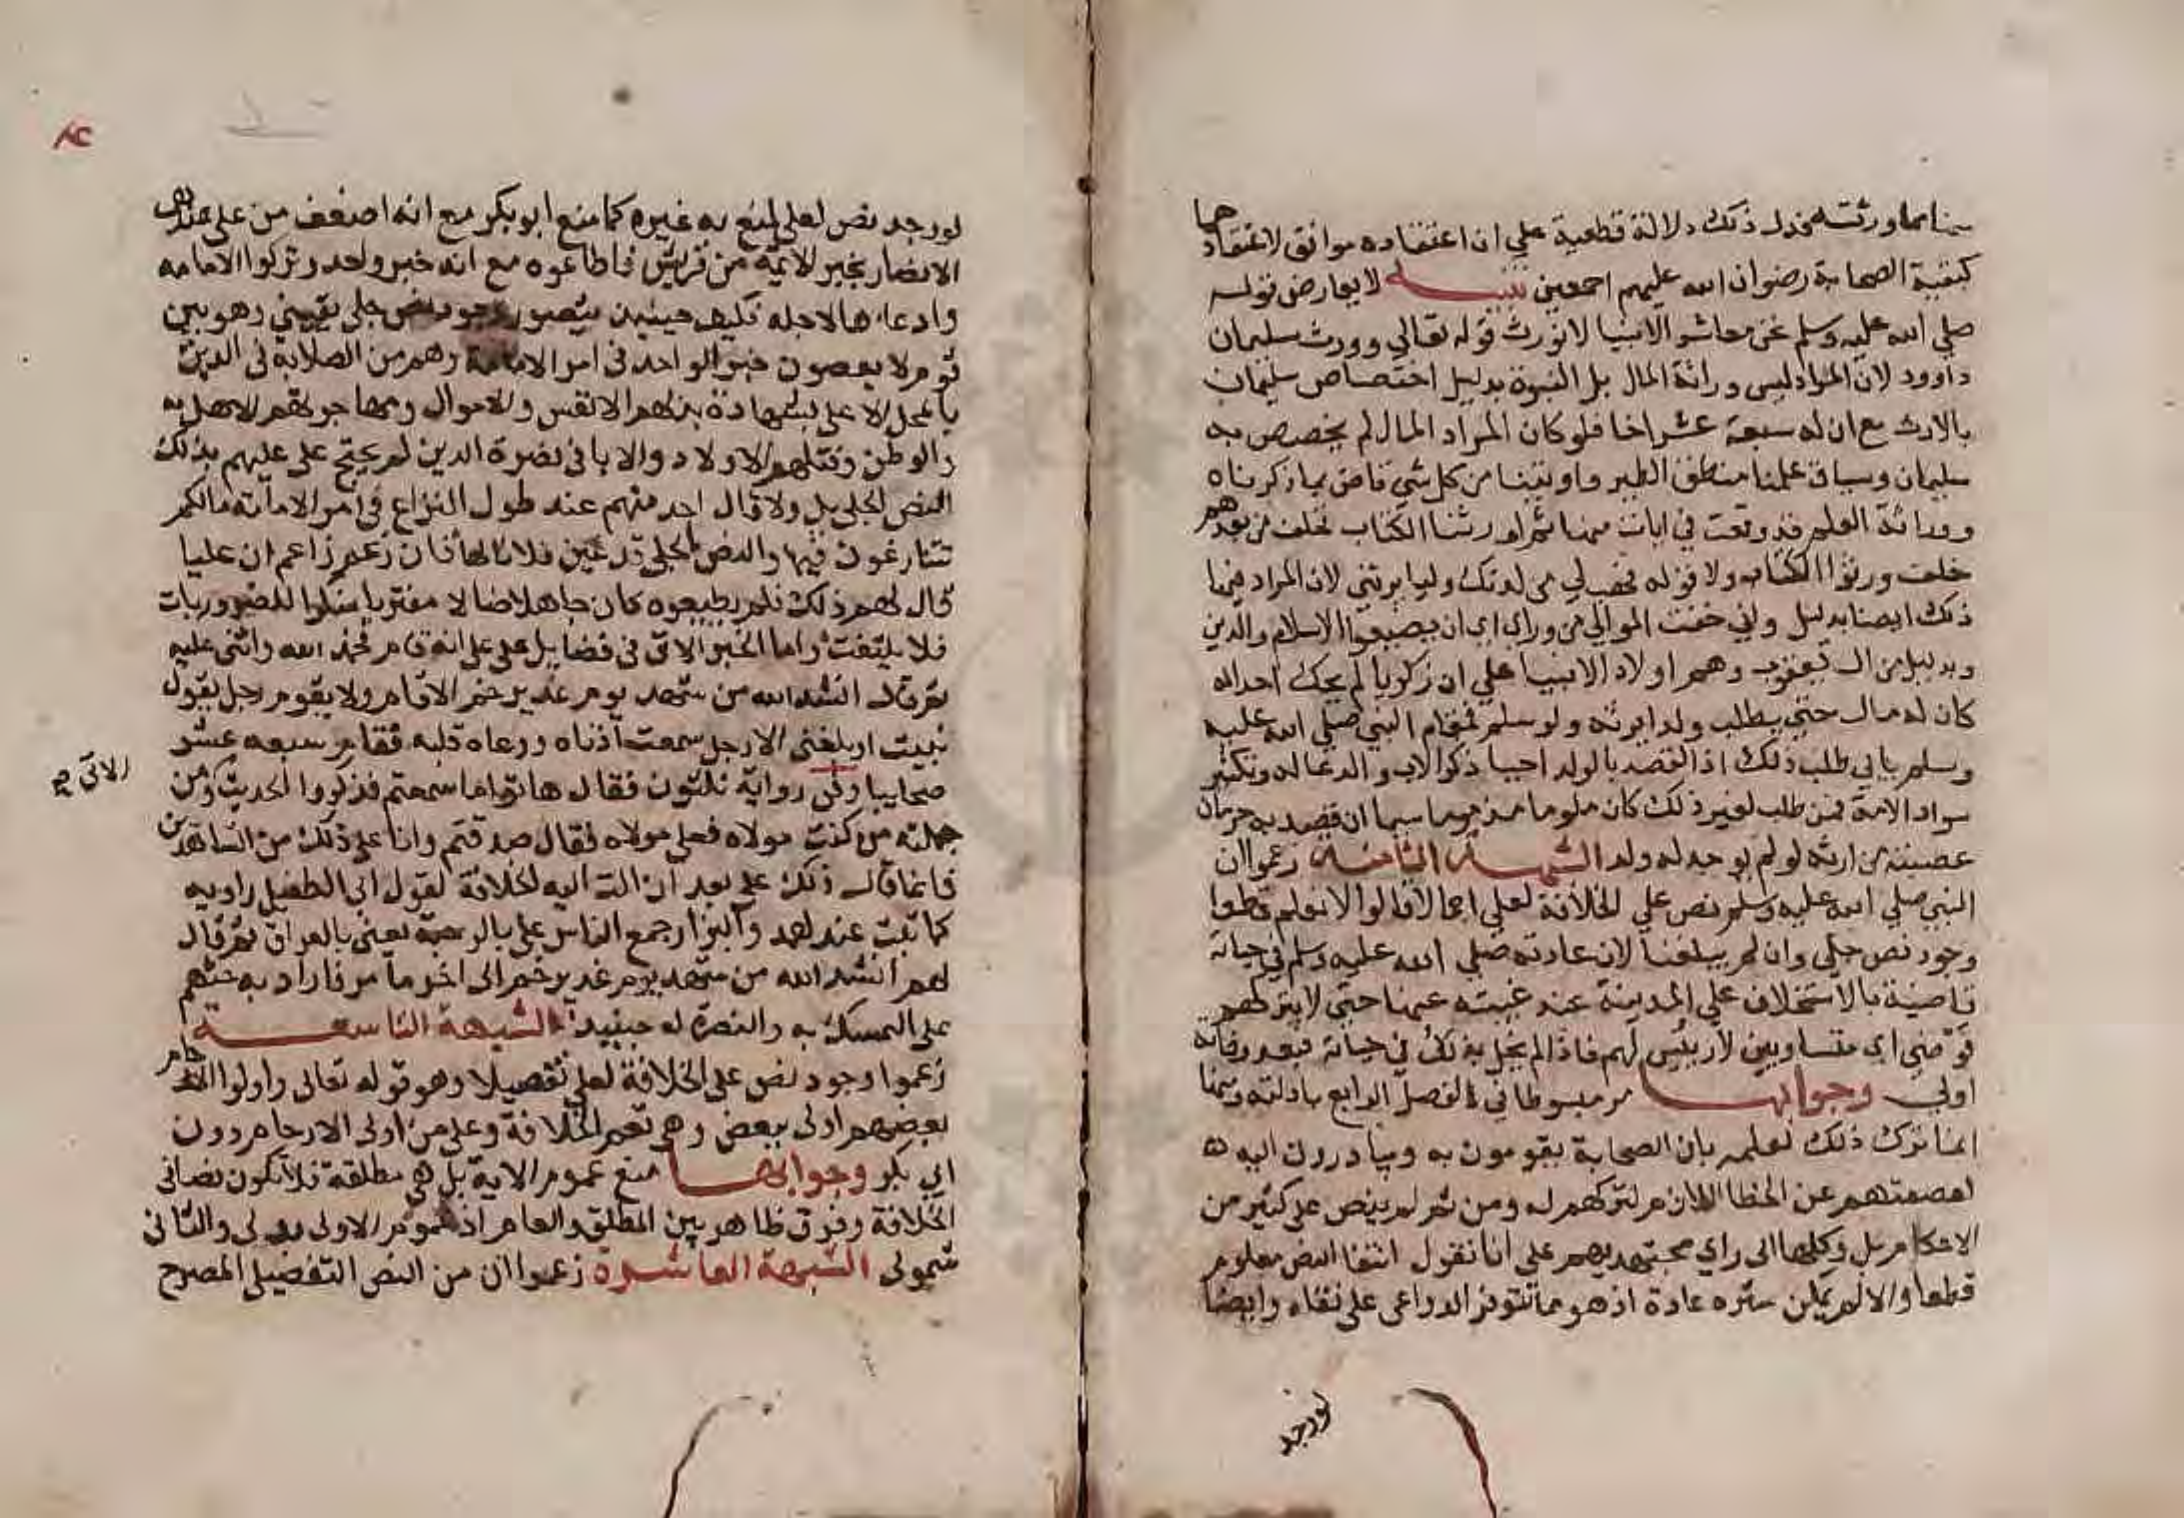 سهما مما ورثته فدل ذلك دلالة قطعية علي ان اعتقاده موافق لاعتقادهما
كبقية الصحابة رضوان الله عليهم اجمعين تنبيه لا يعارض قوله
صلي الله عليه وسلم نحن معاشر الانبيا لا نورث قوله تعالي وورث سليمان
داوود لان المراد ليس وراثة المال بل النبوة بدليل اختصاص سليمان
بالارث مع ان له سبعة عشر اخا فلو كان المراد المال لم يختص به
سليمان وسياق علمنا منطق الطير واوتينا من كل شي قاض بما ذكرناه
ووراثة العلم قد وقعت في ايات منها ثم اورثنا الكتاب فخلف من بعدهم
خلف ورثوا الكتاب ولا قوله فهب لي من لدنك وليا يرثني لان المراد فيها
ذلك ايضا بدليل واني خفت الموالي من وراي اي ان يضيعوا الاسلام والدين
وبدليل من ال يعقوب وهم اولاد الانبيا علي ان زكريا لم يحك احد انه
كان له مال حتي يطلب ولدا يرثه ولو سلم فمقام النبي صلي الله عليه
وسلم يابي طلب ذلك اذ القصد بالولد احيا ذكر الاب والدعا له وتكثير
سواد الامة فمن طلب لغير ذلك كان ملوما مذموما سيما ان قصد به حرمان
عصبته من ارثه لو لم يوجد له ولد الشبهة الثامنة زعموا ان
النبي صلي الله عليه وسلم نص علي الخلافة لعلي اجمالا قالوا لانا نعلم قطعا
وجود نص جلي وان لم يبلغنا لان عادته صلي الله عليه وسلم في حياته
قاضية بالاستخلاف علي المدينة عند غيبته عنها حتي لا يتركهم
فوضي اي متساويين لا رييس لهم فاذا لم يخل بذلك في حياته فبعد وفاته
اولي وجوابها مر مبسوطا في الفصل الرابع بادلته ومنها
انما ترك ذلك لعلمه بان الصحابة يقومون به ويبادرون اليه
لعصمتهم عن الخطا اللازم لتركهم له ومن ثم لم ينص علي كثير من
الاحكام بل وكلها الي راي مجتهديهم علي انا نقول انتفا النص معلوم
قطعا والا لم يمكن ستره عادة اذ هو مما تتوفر الدواعي علي نقله وايضا
لو وجد
لو وجد نص لعلي لمنع به غيره كما منع ابو بكر مع انه اضعف من علي عندهم
الانصار بخبر الايمة من قريش فاطاعوه مع انه خبر واحد وتركوا الامامه
وادعاءها لاجله فكيف حينيذ يتصور وجود نص جلي يقيني وهو بين
قوم لا يعصون خبر الواحد في امر الامامة وهم من الصلابة في الدين
بالمحل الاعلي بشهادة بذلهم الانفس والاموال ومهاجرتهم الاهل
والوطن وقتلهم الاولاد والابا في نصرة الدين لم يحتج علي عليهم بذلك
النص الجلي بل ولا قال احد منهم عند طول النزاع في امر الامامة ما لكم
تتنازعون فيها والنص الجلي قد عين فلانا لها فان زعم زاعم ان عليا
قال لهم ذلك فلم يطيعوه كان جاهلا ضالا مفتريا منكرا للضروريات
فلا يلتفت اليه واما الخبر الاتي في فضايل علي انه قام فحمد الله واثني عليه
ثم قال انشد الله من شهد يوم غدير خم الا قام ولا يقوم رجل يقول
نبيت او بلغني الا رجل سمعت اذناه ووعاه قلبه فقام سبعه عشر
صحابيا وفي رواية ثلثون فقال هاتوا ما سمعتم فذكروا الحديث ومن
الاتي
جملته من كنت مولاه فعلي مولاه فقال صدقتم وانا علي ذلك من الشاهدين
فانما قال ذلك علي بعد ان الت اليه الخلافة لقول ابي الطفيل راويه
كما ثبت عند احمد والبزار جمع الناس علي بالرحبة يعني بالعراق ثم قال
لهم انشد الله من شهد يوم غدير خم الي اخر ما مر فاراد به حثهم
علي التمسك به والنصرة له حينيذ الشبهة التاسعة
زعموا وجود نص علي الخلافة لعلي تفصيلا وهو قوله تعالي واولوا الارحام
بعضهم اولي ببعض وهي تعم الخلافة وعلي من اولي الارحام دون
ابي بكر وجوابها منع عموم الاية بل هي مطلقة فلا تكون نصا في
الخلافة وفرق ظاهر بين المطلق والعام اذ عموم الاولي بدلي والثاني
شمولي الشبهة العاشرة زعموا ان من النص التفصيلي المصرح